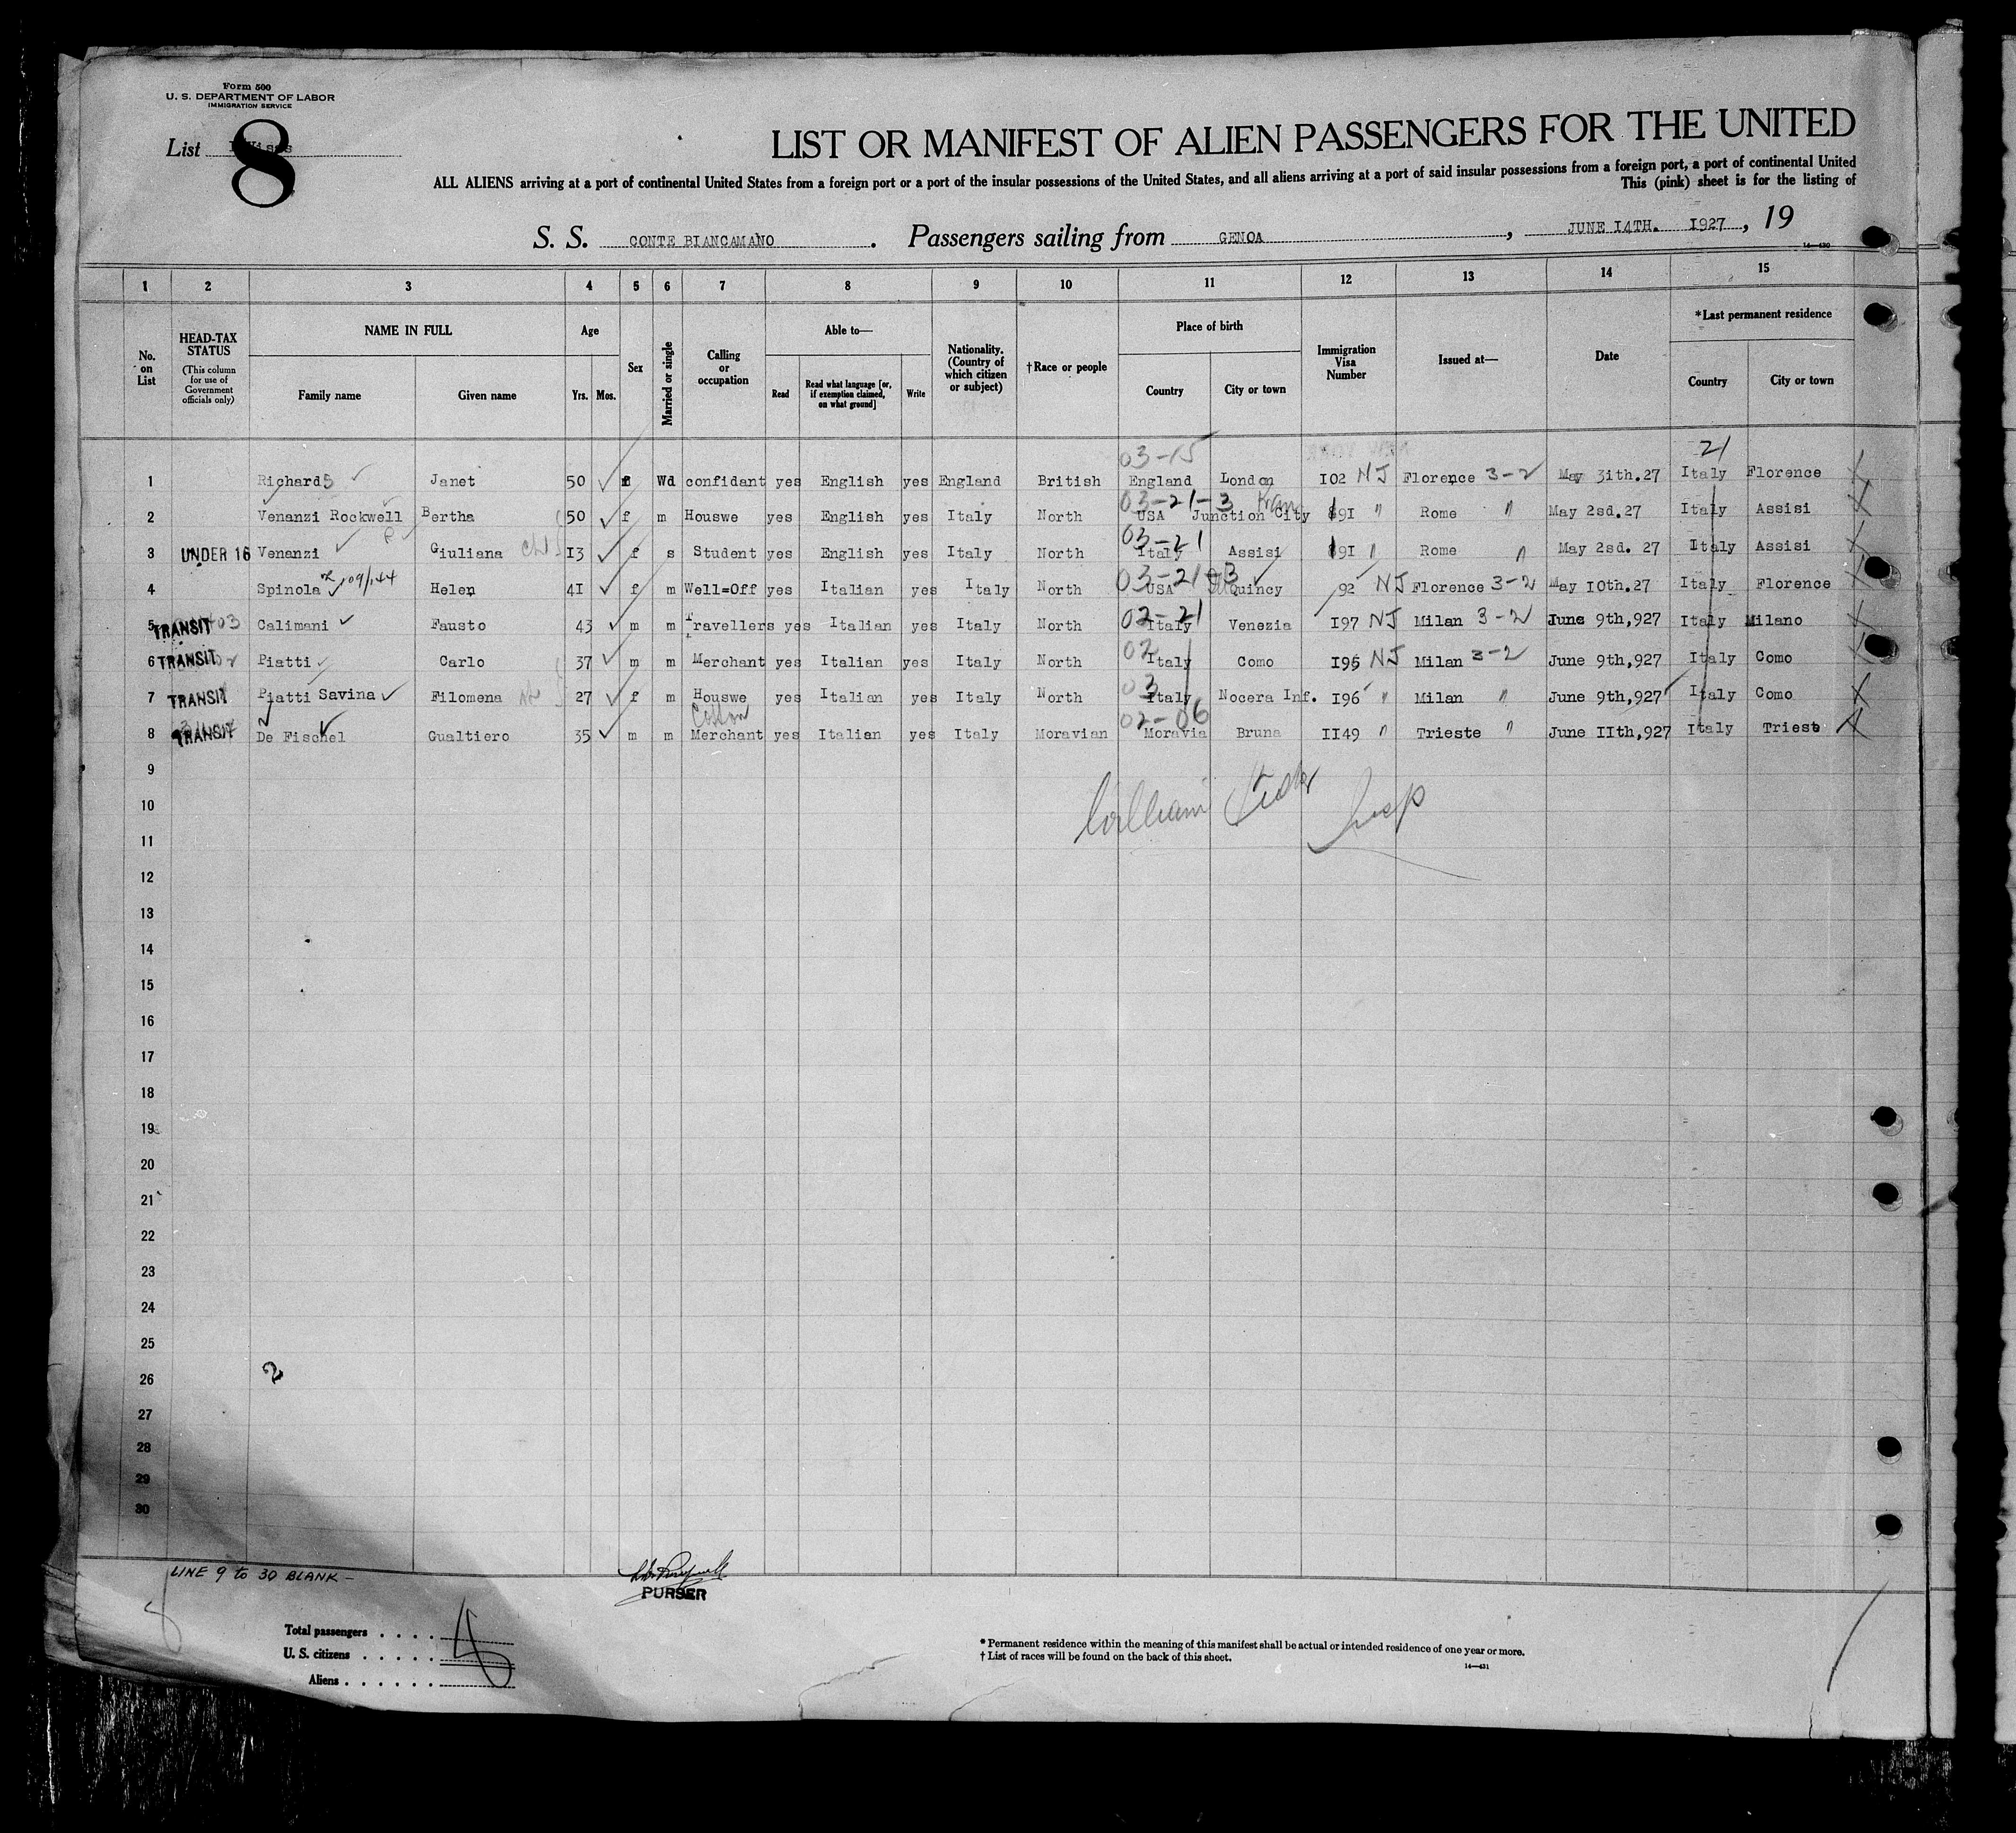 Form 500
U. S. DEPARTMENT OF LABOR
IMMIGRATION SERVICE
List 8
LIST OR MANIFEST OF ALIEN PASSENGERS FOR THE UNITED
ALL ALIENS arriving at a port of continental United States from a foreign port or a port of the insular possessions of the United States, and all aliens arriving at a port of said insular possessions from a foreign port, a port of continental United
This (pink) sheet is for the listing of
S. S. CONTE BIANCAMANO . Passengers sailing from GENOA , JUNE I4TH. I927 , 19
14—430
1 2 3 4 5 6 7 8 9 10 11 12 13 14 15
No. on List
HEAD-TAX STATUS (This column for use of Government officials only)
NAME IN FULL
Family name Given name
Age
Yrs. Mos.
Sex
Married or single
Calling or occupation
Able to—
Read Read what language [or, if exemption claimed, on what ground] Write
Nationality. (Country of which citizen or subject)
†Race or people
Place of birth
Country City or town
Immigration Visa Number
Issued at—
Date
*Last permanent residence
Country City or town
03-15 21
1 Richards Janet 50 f Wd confidant yes English yes England British England London I02 NJ Florence 3-2 May 3ith.27 Italy Florence
03-21-3
2 Venanzi Rockwell Bertha 50 f m Houswe yes English yes Italy North USA Junction City 891 " Rome " May 2sd.27 Italy Assisi
03-21
3 UNDER 16 Venanzi Giuliana I3 f s Student yes English yes Italy North Italy Assisi 891 " Rome " May 2sd. 27 Italy Assisi
03-21
4 Spinola Helen 4I f m Well=Off yes Italian yes Italy North USA Quincy 92 NJ Florence 3-2 May I0th.27 Italy Florence
02-21
5 TRANSIT Calimani Fausto 43 m m Travellers yes Italian yes Italy North Italy Venezia I97 NJ Milan 3-2 June 9th,927 Italy Milano
02
6 TRANSIT Piatti Carlo 37 m m Merchant yes Italian yes Italy North Italy Como I95 NJ Milan 3-2 June 9th,927 Italy Como
03
7 TRANSIT Piatti Savina Filomena 27 f m Houswe yes Italian yes Italy North Italy Nocera Inf. I96 " Milan " June 9th,927 Italy Como
Cotton 02-06
8 TRANSIT De Fischel Gualtiero 35 m m Merchant yes Italian yes Italy Moravian Moravia Bruna II49 " Trieste " June IIth,927 Italy Triest
9
10
William Insp
11
12
13
14
15
16
17
18
19
20
21
22
23
24
25
26
2
27
28
29
30
LINE 9 to 30 BLANK -
PURSER
Total passengers . . . .
U. S. citizens . . . . .
Aliens . . . . . .
* Permanent residence within the meaning of this manifest shall be actual or intended residence of one year or more.
† List of races will be found on the back of this sheet.
14—431